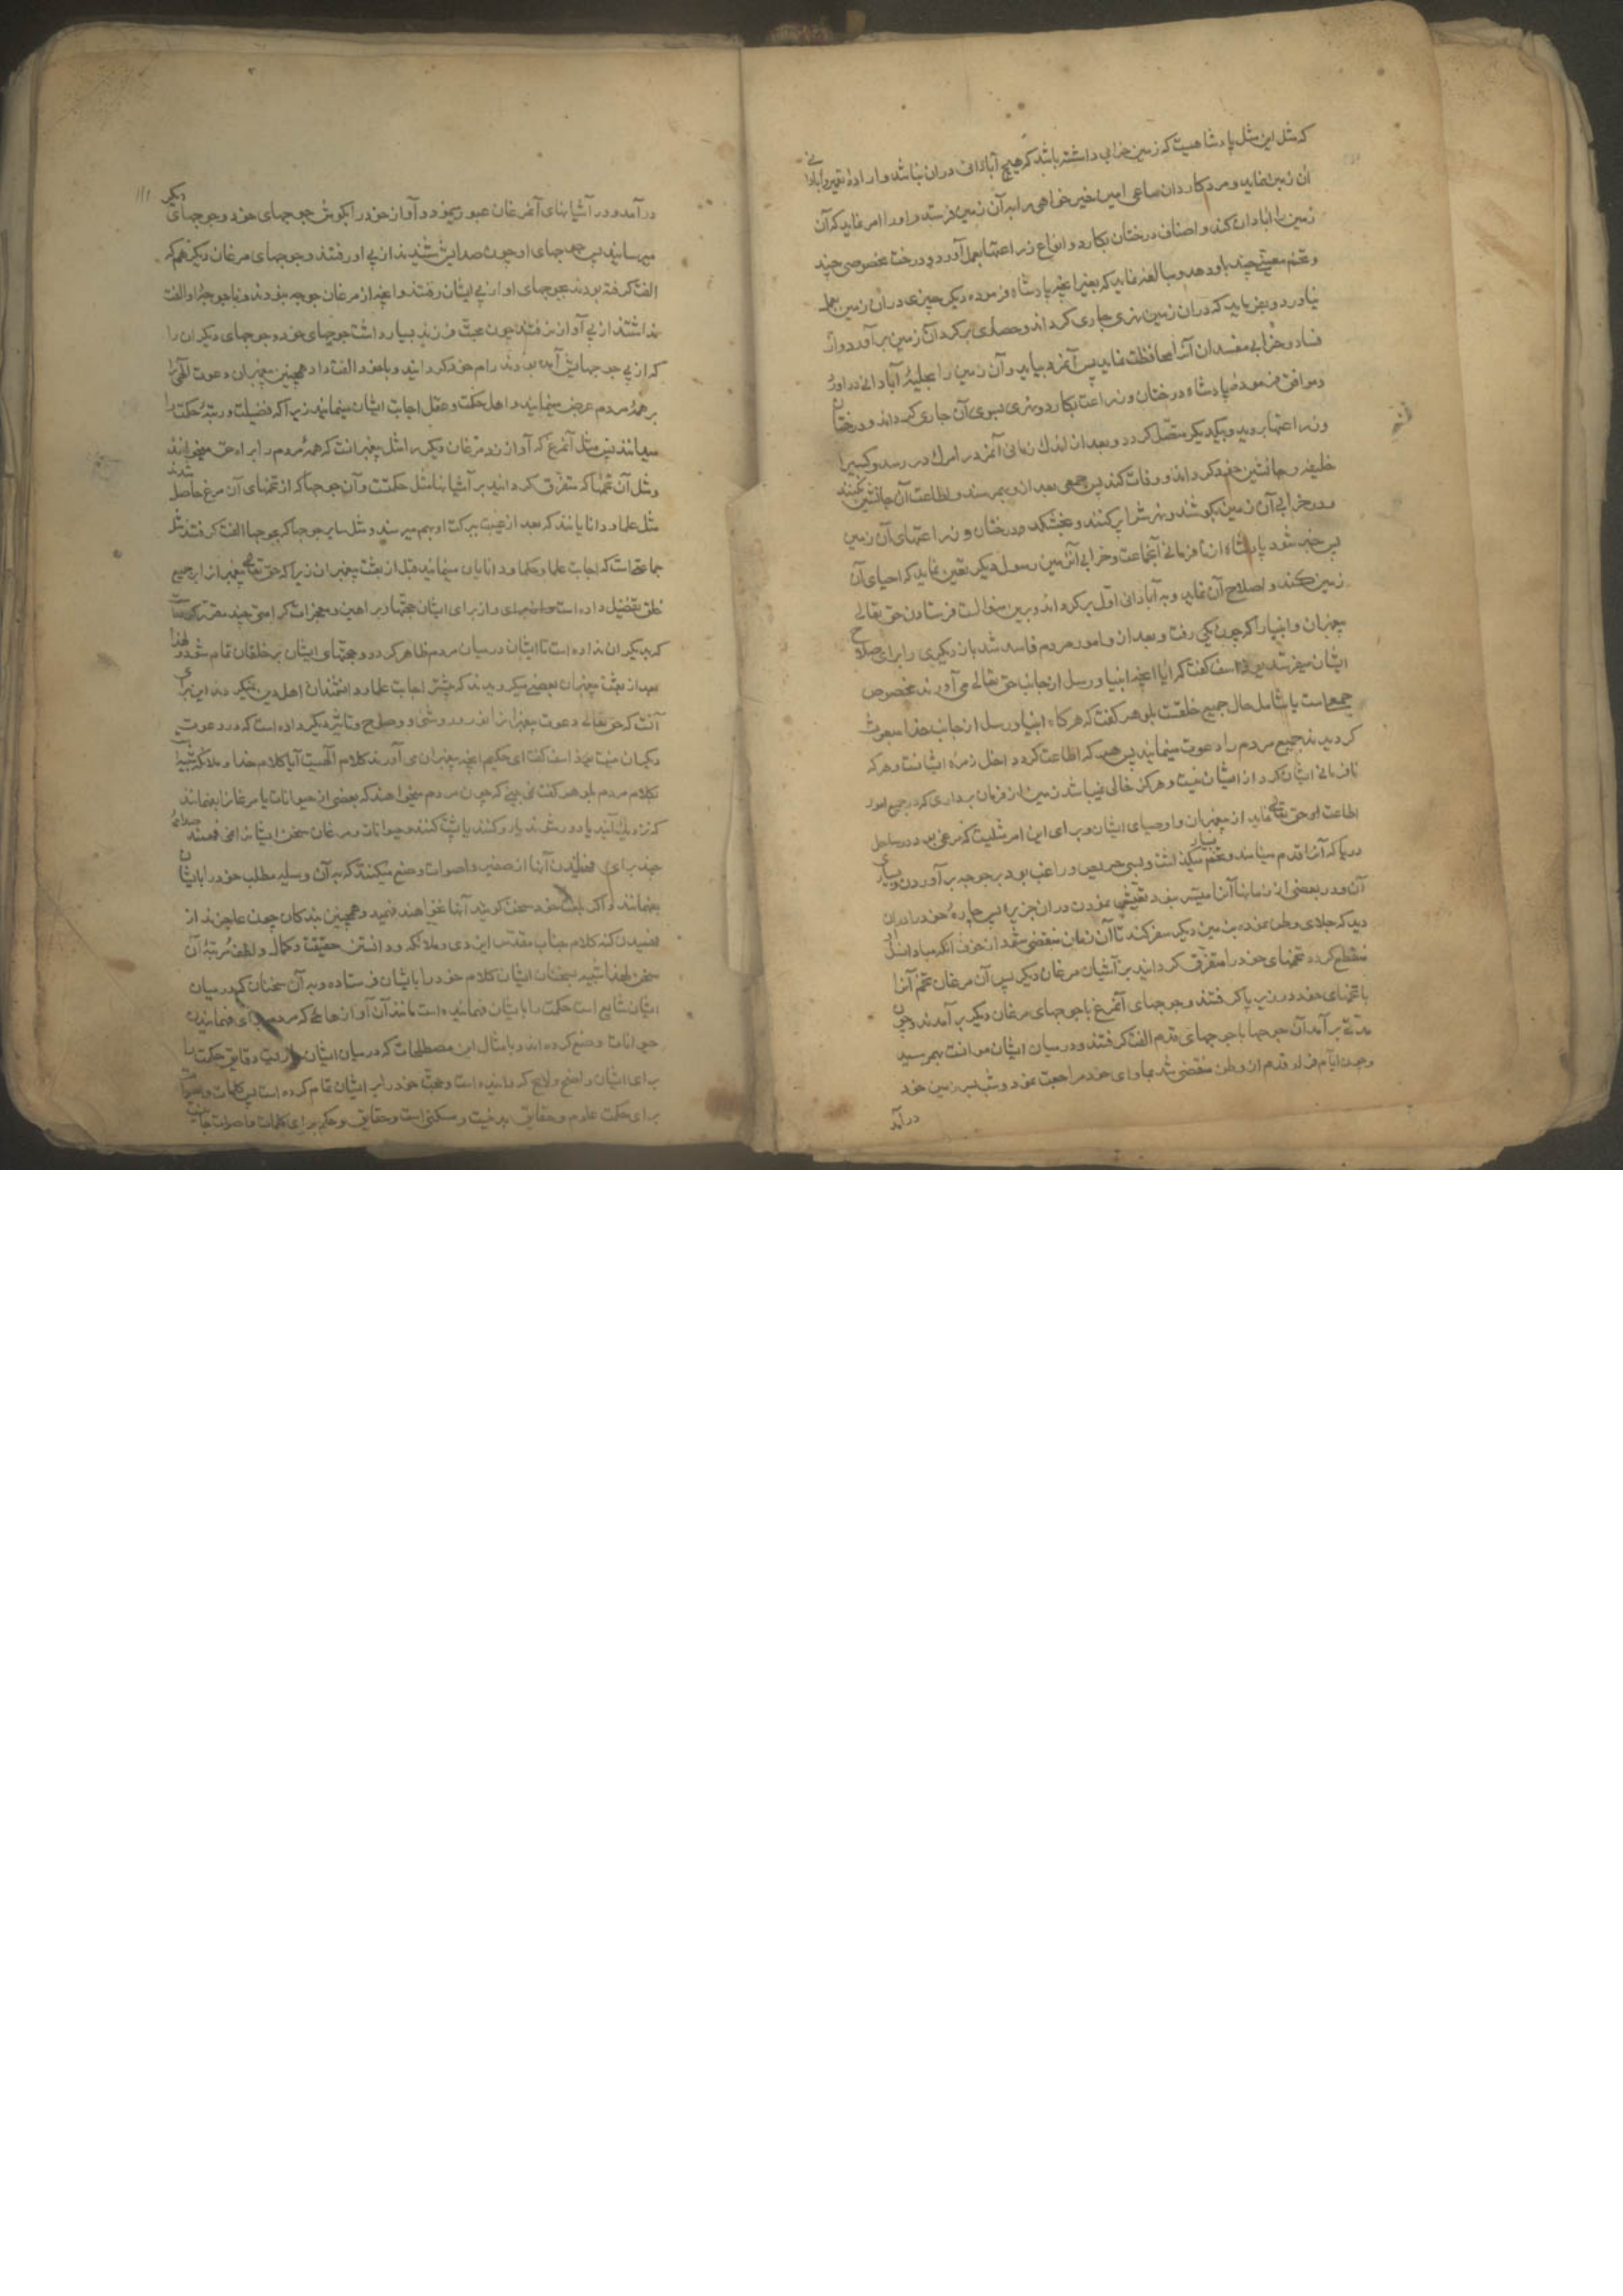 که مثل این مثل پادشاهیست که زمین خرابی داشته باشد که هیچ آبادانی دران نباشد و اراده تعمیر و آبادانی
آن زمین نماید و مرد کاردان ساعی امین خیرخواهی را بآن زمین فرستد و او را امر نماید که آن
زمین را آبادان کند و اصناف درختان بکارد و انواع زراعتها بعمل آورد و درخت مخصوصی چند
و تخم معینی چند باو دهد و مبالغه نماید که بغیر آنچه پادشاه فرموده دیگر چیزی دران زمین بعمل
نیاورد و بفرماید که دران زمین نهری جاری گرداند و حصاری بر گرد آن زمین برآورد و از
فساد و خرابی مفسدان آنرا محافظت نماید پس آنمرد بیاید و آن زمین را بحلیه آبادانی درآورد
و موافق فرموده پادشاه درختان و زراعت بکارد و نهری بسوی آن جاری گرداند و درختان
و زراعتها بروید و بیکدیگر متصل گردد و بعد از اندک زمانی آنمرد را مرگ در رسد و کسیرا
خلیفه و جانشین خود گرداند و وفات کند پس جمعی بعد ازو بهمرسند و اطاعت آن جانشین نکنند
و در خرابی آن زمین بکوشند و نهرش را پر کنند و بخشکد درختان و زراعتهای آن زمین
پس خبر شود پادشاه از نافرمانی آنجماعت و خرابی آنزمین رسول دیگر تعین نماید که احیای آن
زمین کند و اصلاح آن نماید و به آبادانی اول برگرداند و برین منوالست فرستادن حق تعالی
پیغمبران و انبیا را که چون یکی رفت و بعد ازو امور مردم فاسد شد باز دیگری را برای اصلاح
ایشان میفرستد یوذاسف گفت که آیا آنچه انبیا و رسل از جانب حق تعالی می آورند مخصوص
جمعی است یا شامل حال جمیع خلقست بلوهر گفت که هرگاه انبیا و رسل از جانب خدا مبعوث
گردیدند جمیع مردم را دعوت مینمایند پس هر که اطاعت کرد داخل زمره ایشانست و هر که
نافرمانی ایشان کرد از ایشان نیست و هرگز خالی نمیباشد زمین از فرمان برداری که در جمیع امور
اطاعت او حق تعالی نماید از پیغمبران و اوصیای ایشان و برای این امر مثلیست که مرغی بود در ساحل
دریا که آنرا قدم مینامند و تخم بسیار میگذاشت و بسی حریص و راغب بود بر جوجه برآوردن و بسیاری
آن و در بعضی از زمانها آنرا میسر نبود تعیش نمودن دران جزیره پس چاره خود را دران
دید که جلای وطن نموده بزمین دیگر سفر کند تا آن زمان منقضی شود از خوف آنکه مبادا نسل او
منقطع گردد تخمهای خود را متفرق گردانید بر آشیان مرغان دیگر پس آن مرغان تخم آنرا
با تخمهای خود در زیر پا گرفتند و جوجهای آنمرغ با جوجهای مرغان دیگر برآمدند و چون
مدتی برآمد آن جوجها با جوجهای قدم الفت گرفتند و در میان ایشان موانست بهمرسید
و چون ایام فرار قدم از وطن منقضی شد بماوای خود مراجعت نمود و شب بسرزمین خود
درآمد
دیگر
درآمد و در آشیانهای آنمرغان عبور مینمود و آواز خود را بگوش جوجهای خود و جوجهای
میرسانید پس جوجهای او چون صدایش شنیدند از پی او رفتند و جوجهای مرغان دیگر هم که
الفت گرفته بودند بجوجهای او از پی ایشان رفتند و آنچه از مرغان جوجه نبودند و با جوجه او الفت
نداشتند از پی آواز نرفتند چون محبت فرزند بسیار داشت جوجهای خود و جوجهای دیگران را
که از پی جوجهایش آمده بودند رام خود گردانید و با خود الفت داد همچنین پیغمبران دعوت الهی را
بر همه مردم عرض مینمایند و اهل حکمت و عقل اجابت ایشان مینمایند زیرا که فضیلت و رتبه حکمت را
میدانند پس مثل آنمرغ که آواز زد مرغان دیگر را مثل پیغمبرانست که همه مردم را براه حق میخوانند
و مثل آن تخمها که متفرق گردانید بر آشیانها مثل حکمتست و آن جوجها که از تخمهای آن مرغ حاصل شدند
مثل علما و دانایانند که بعد از غیبت ببرکت او بهم میرسند و مثل سایر جوجها که بجوجها الفت گرفتند مثل
جماعتیست که اجابت علما و حکما و دانایان مینمایند قبل از بعثت پیغمبران زیرا که حق تعالی پیغمبرانرا بر جمیع
خلق تفضیل داده است و از برای ایشان حجتها و براهین و معجزات کرامتی چند مقرر کرده است
که بدیگران نداده است تا ایشان در میان مردم ظاهر گردد و حجتهای ایشان بر خلقان تمام شود لهذا
بعد از بعثت پیغمبران بعضی میگرویدند که پیشتر اجابت علما و دانشمندان اهل دین نمیکردند این برای
آنست که حق تعالی دعوت پیغمبرانرا نور و روشنی و وضوح و تاثیر دیگر داده است که در دعوت
دیگران نیست یوذاسف گفت ای حکیم آنچه پیغمبران می آورند کلام آلهیست آیا کلام خدا و ملائکه شبیه است
بکلام مردم بلوهر گفت نمی بینی که چون مردم میخواهند که بعضی از حیوانات یا مرغانرا بفهمانند
که نزدیک آیند یا دور شوند یا رو کنند یا پشت کنند و حیوانات و مرغان سخن ایشانرا نمی فهمند صدائی
چند برای فهمانیدن آنها از صفیر و اصوات وضع میکنند که به آن وسیله مطلب خود را بایشان
بفهمانند و اگر بلغت خود سخن گویند آنها نخواهند فهمید و همچنین بندگان چون عاجزند از
فهمیدن کنه کلام جناب مقدس ایزدی و ملائکه و دانستن حقیقت و کمال و لطف مرتبه آن
سخن لهذا شبیه بسخنان ایشان کلام خود را بایشان فرستاده و به آن سخنان که در میان
ایشان شایع است حکمت را بایشان فهمانیده است مانند آن آوازهائی که مردم برای فهمانیدن
حیوانات وضع کرده اند و بامثال این مصطلحات که در میان ایشان دقایق حکمت را
برای ایشان واضح و لایح گردانیده است و حجت خود را بر ایشان تمام کرده است پس کلمات و اصوات
برای حکمت علوم و حقایق بدنیست و مسکنی است و حقایق و حکم برای کلمات و اصوات جانیست